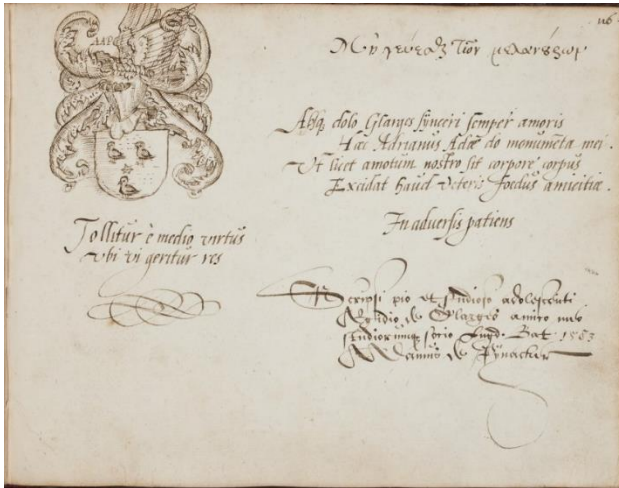 116
AAPC
Μὴ γεύεσθαι τῶν μελανούρων
Absq dolo Glarges synceri semper amoris
Hæc Adrianus Adæ do monumēta mei.
Ut licet amotum nostro sit corpore corpus
Excidat haud veteris foedus amicitiæ.
In adversis patiens
Tollitur è medio virtus
Ubi vi geritur res
Scripsi pio et studioso adolescenti
Ægidio de Glarges amico meo
studiorumq socio Lugd. Bat 1583
Adamus de